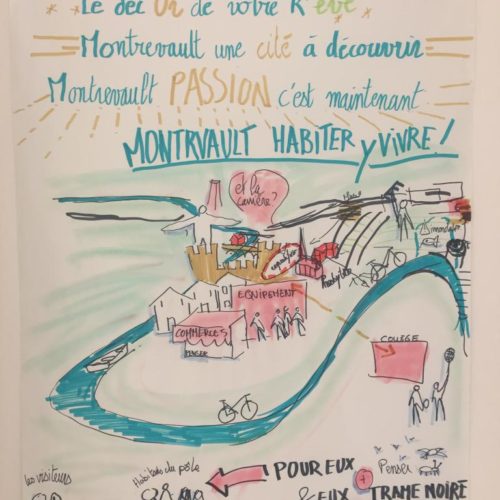 Le décOr de votre Rêve
Montrevault une cité à découvrir
Montrevault PASSION c'est maintenant
MONTRVAULT HABITER y VIVRE !
et la
carrière ?
EQUIPEMENT
COMMERCES
COLLEGE
les visiteurs
Habitants du pôle
POUR EUX
& EUX
+
Penser
TRAME NOIRE